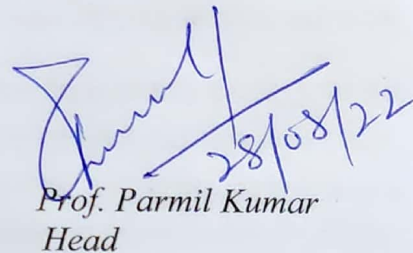 28/08/22
Prof. Parmil Kumar
Head